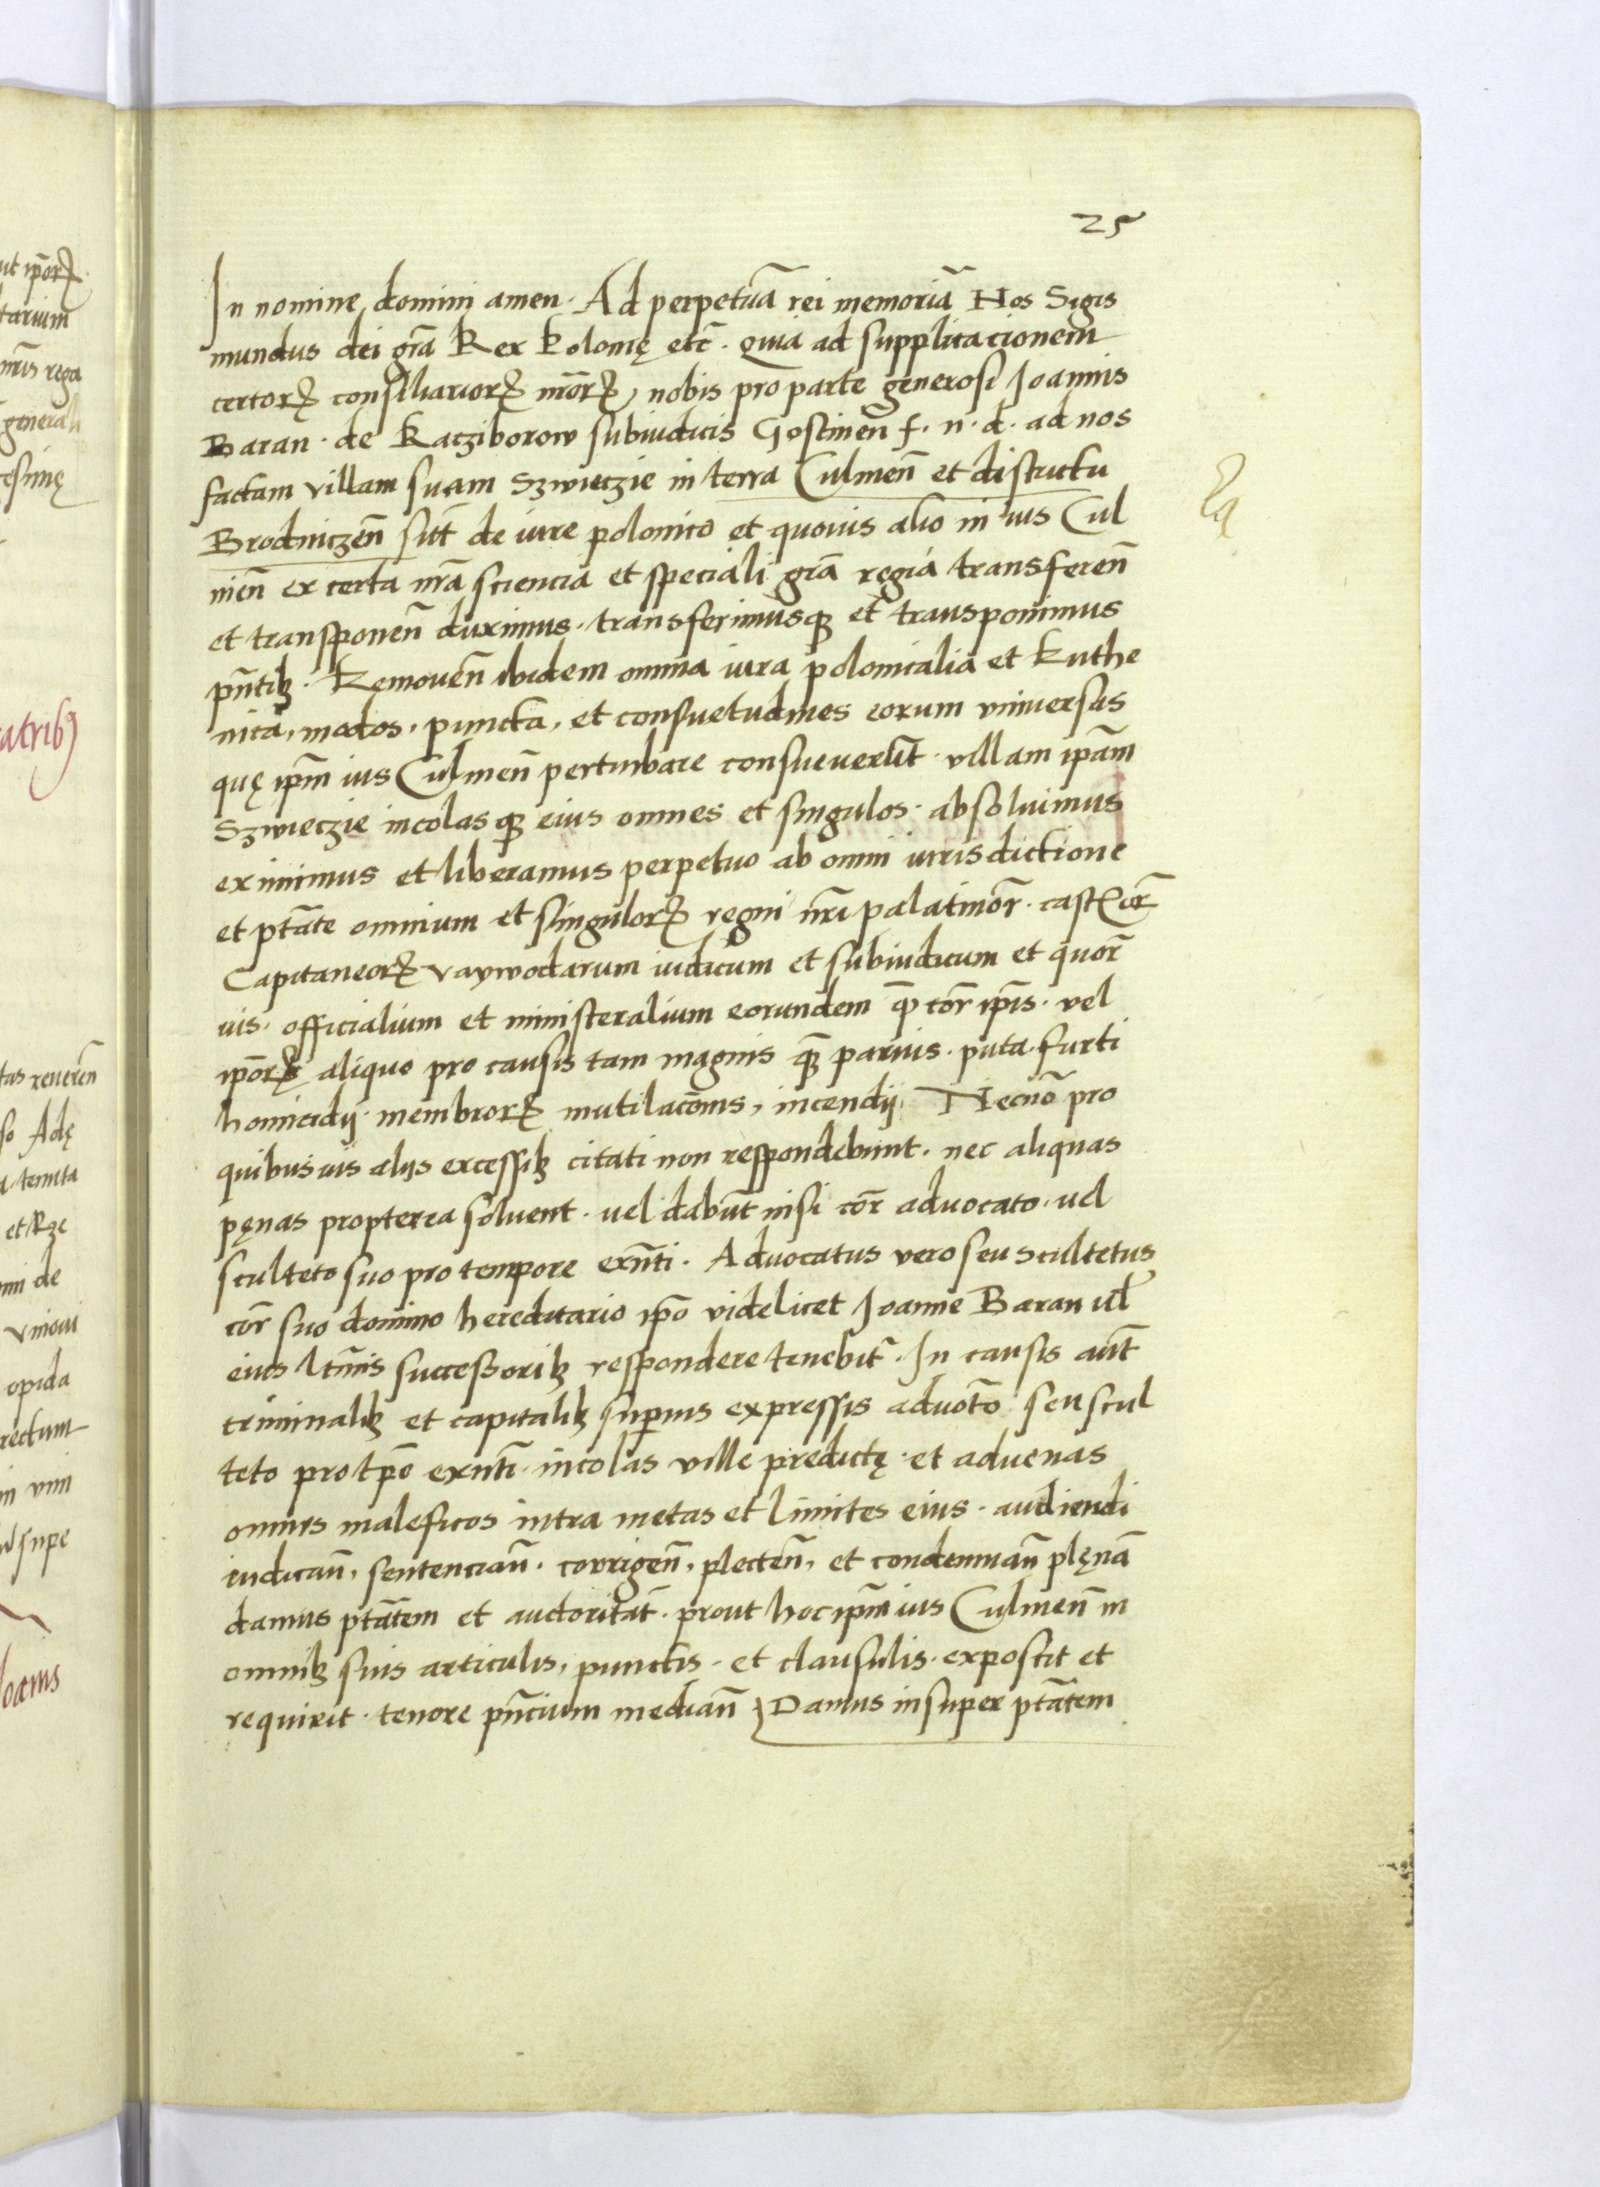 25
In nomine domini amen. Ad perpetuā rei memoriā Nos Sigis
mundus dei grā Rex Polonię etc̄. quia ad supplicacionem
certorꝝ consiliariorꝝ nrōrꝝ, nobis pro parte generosi Joannis
Baran. de Racziborow subiudicis Gostinen̄ f. n. d. ad nos
factam villam suam Szwieczie in terra Culmen̄ et districtu
Brodniczen̄ sitt̄ de iure polonico et quouis alio in ius Cul
men̄ ex certa nrā sciencia et speciali grā regia transferen̄
et transponen̄ duximus. transferimusqꝫ et transponimus
pn̄tibꝫ. Remouen̄ ibidem omnia iura polonicalia et Ruthe
nica, modos, puncta, et consuetudines eorum vniuersas
quę ipm̄ ius Culmen̄ perturbare consueuerūt. villam ipām
Szwieczie incolasqꝫ eius omnes et singulos. absoluimus
eximimus et liberamus perpetuo ab omni iurisdictione
et ptāte omnium et singulorꝝ regni nrī palatinor̄. castꝉor̄
Capitaneorꝝ vaywodarum iudicum et subiudicum et quor̄
uis. officialium et ministeralium eorundem qꝫ cor̄ ipīs. vel
ipōrꝝ aliquo pro causis tam magnis qꝫ paruis. puta. furti
homicidij. membrorꝝ mutilacōnis, incendij. Necnō pro
quibusuis alijs excessibꝫ citati non respondebunt. nec aliquas
pęnas propterea soluent. uel dabūt nisi cor̄ aduocato. uel
sculteto suo pro tempore exn̄ti. Aduocatus vero seu scultetus
cor̄ suo domino hereditario ipō videlicet Joanne Baran ul̄
eius ltīmis successoribꝫ respondere tenebit̄. In causis aūt
criminalibꝫ et capitalibꝫ superius expressis aduoc̄to seu scul
teto pro tpē exn̄ti. incolas ville predictę. et aduenas
omnes maleficos intra metas et limites eius. audiendi
iudican̄, sentencian̄. corrigen̄, plecten̄, et condemnan̄ plęnā
damus ptātem et auctoritat̄. prout hoc ipm̄ ius Culmen̄ in
omnibꝫ suis articulis, punctis. et clausulis. exposcit et
requirit. tenore pn̄cium median̄ Damus insuper ptātem